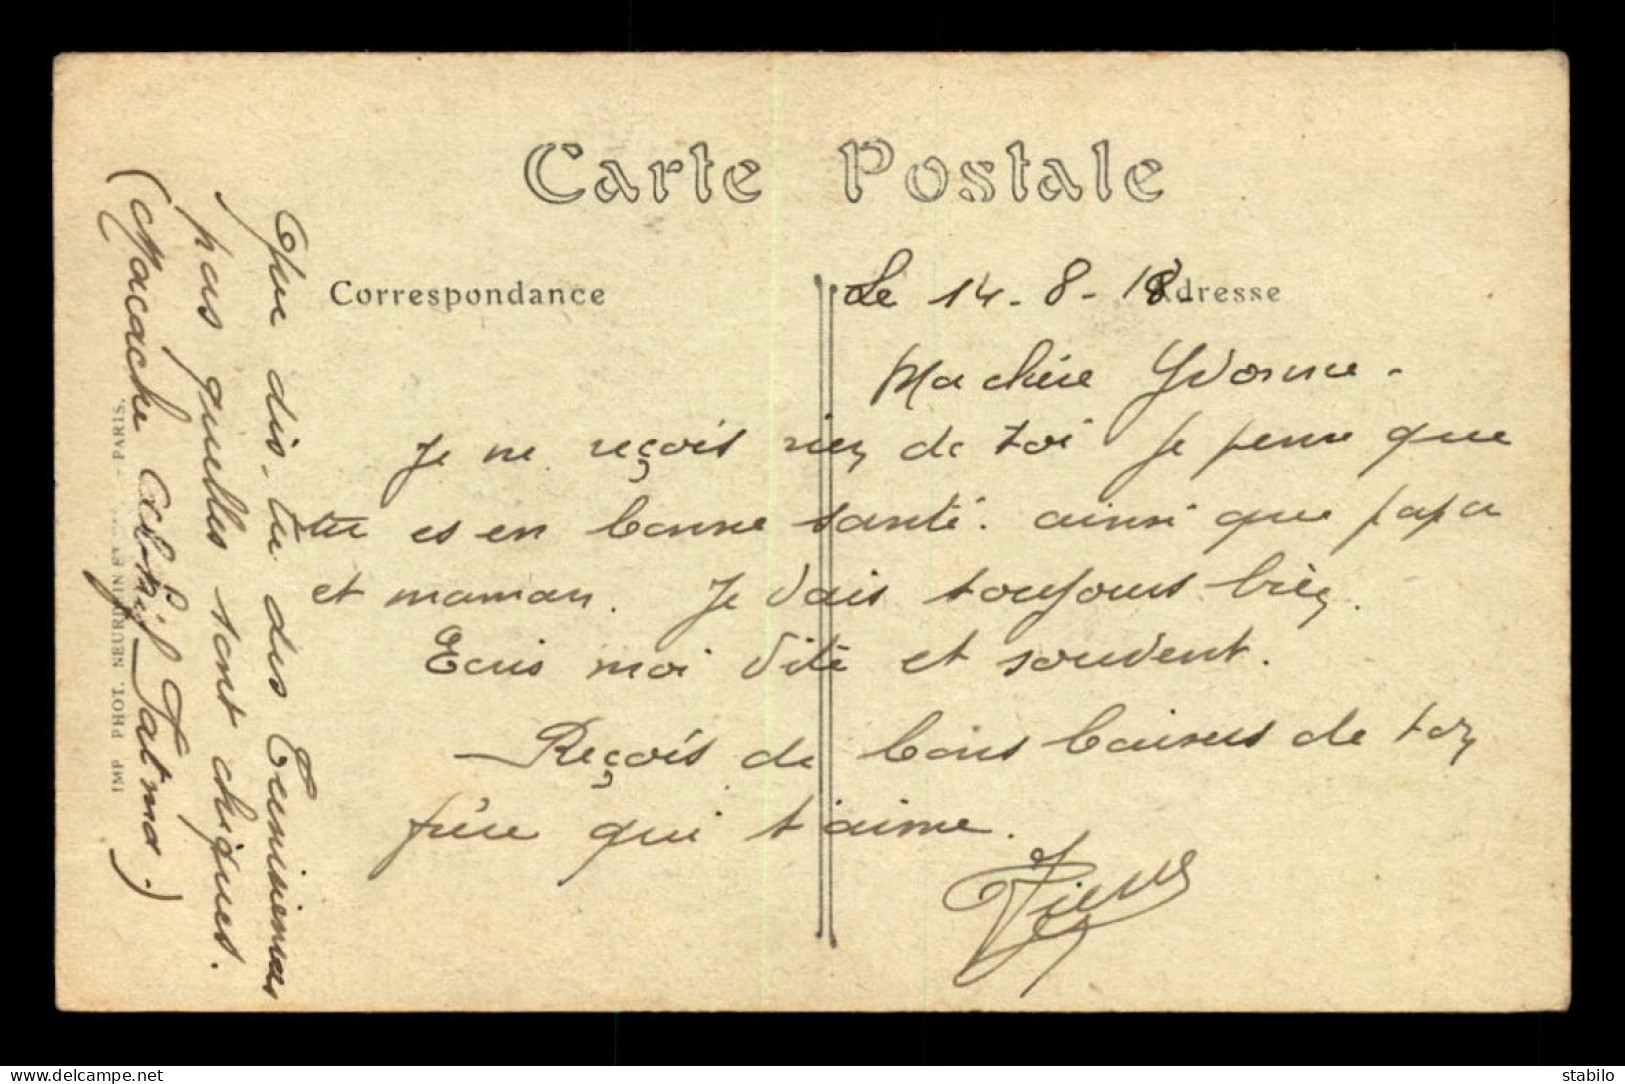 Carte Postale
Correspondance
Adresse
Le 14-8-18-
Ma chère Yvonne.
Je ne reçois rien de toi Je pense que
tu es en bonne santé. ainsi que papa
et maman. Je vais toujours bien.
Ecris moi vite et souvent.
Reçois de bons baisers de ton
frère qui t'aime.
Que dis-tu des Tunisiennes
pas qu'elles sont chiques.
(Macache Fatma.)
IMP PHOT. NEURDEIN ET - PARIS.
stabilo